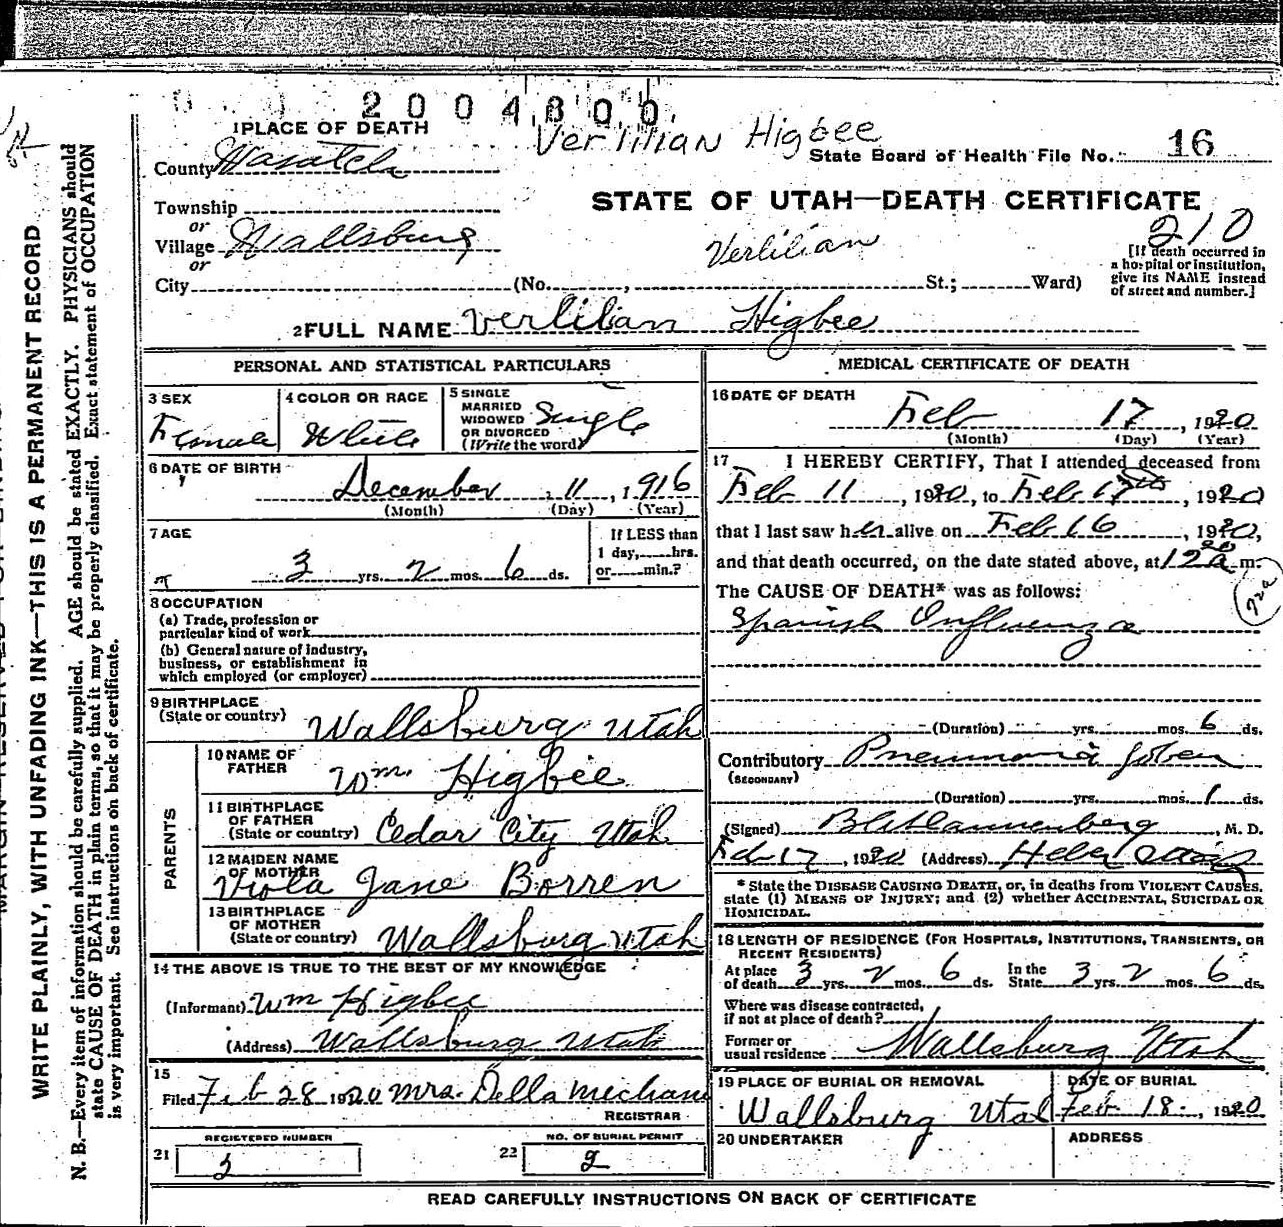 2004800
Verlilian Higbee
1 PLACE OF DEATH
County Wasatch
State Board of Health File No. 16
Township
or
Village Wallsburg
or
City (No. , St.; Ward)
STATE OF UTAH—DEATH CERTIFICATE
210
Verlilian
[If death occurred in
a hospital or institution,
give its NAME instead
of street and number.]
2 FULL NAME Verlilian Higbee
PERSONAL AND STATISTICAL PARTICULARS
3 SEX
Female
4 COLOR OR RACE
White
5 SINGLE
MARRIED
WIDOWED
OR DIVORCED
(Write the word)
Single
6 DATE OF BIRTH
December 11, 1916
(Month) (Day) (Year)
7 AGE
3 yrs. 2 mos. 6 ds.
If LESS than
1 day, hrs.
or min.?
8 OCCUPATION
(a) Trade, profession or
particular kind of work
(b) General nature of industry,
business, or establishment in
which employed (or employer)
9 BIRTHPLACE
(State or country) Wallsburg Utah
PARENTS
10 NAME OF
FATHER Wm. Higbee
11 BIRTHPLACE
OF FATHER
(State or country) Cedar City Utah
12 MAIDEN NAME
OF MOTHER
Viola Jane Borren
13 BIRTHPLACE
OF MOTHER
(State or country) Wallsburg Utah
14 THE ABOVE IS TRUE TO THE BEST OF MY KNOWLEDGE
(Informant) Wm Higbee
(Address) Wallsburg Utah
15
Filed Feb 28 1920 Mrs. Della
REGISTRAR
REGISTERED NUMBER
21 3
NO. OF BURIAL PERMIT
22 2
MEDICAL CERTIFICATE OF DEATH
16 DATE OF DEATH
Feb 17, 1920
(Month) (Day) (Year)
17 I HEREBY CERTIFY, That I attended deceased from
Feb 11, 1920, to Feb 17th, 1920
that I last saw her alive on Feb 16, 1920,
and that death occurred, on the date stated above, at 12 20 a m.
The CAUSE OF DEATH* was as follows:
Spanish Influenza
(Duration) yrs. mos. 6 ds.
Contributory Pneumonia Lobar
(SECONDARY)
(Duration) yrs. mos. 1 ds.
(Signed) , M. D.
Feb 17, 1920 (Address) Heber
* State the DISEASE CAUSING DEATH, or, in deaths from VIOLENT CAUSES,
state (1) MEANS OF INJURY; and (2) whether ACCIDENTAL, SUICIDAL OR
HOMICIDAL.
18 LENGTH OF RESIDENCE (FOR HOSPITALS, INSTITUTIONS, TRANSIENTS, OR
RECENT RESIDENTS)
At place
of death 3 yrs. 2 mos. 6 ds. In the
State 3 yrs. 2 mos. 6 ds.
Where was disease contracted,
if not at place of death?
Former or
usual residence Wallsburg Utah
19 PLACE OF BURIAL OR REMOVAL
Wallsburg Utah
DATE OF BURIAL
Feb 18, 1920
20 UNDERTAKER
ADDRESS
READ CAREFULLY INSTRUCTIONS ON BACK OF CERTIFICATE
WRITE PLAINLY, WITH UNFADING INK—THIS IS A PERMANENT RECORD
N. B.—Every item of information should be carefully supplied. AGE should be stated EXACTLY. PHYSICIANS should
state CAUSE OF DEATH in plain terms, so that it may be properly classified. Exact statement of OCCUPATION
is very important. See instructions on back of certificate.